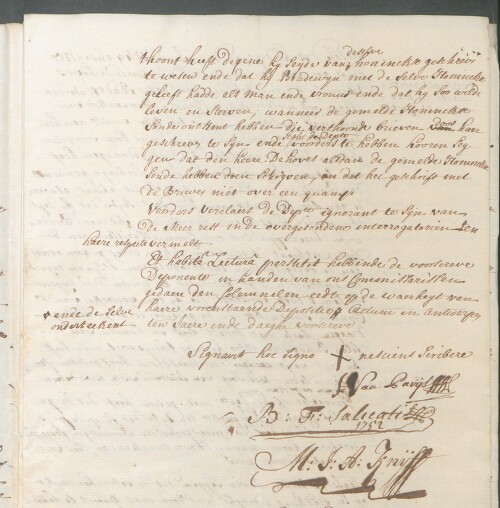 thoont heeft degene hy seyde van de selve Honinckx geschreven
te wesen ende dat hy Boudewijn met de selve Honinckx
geleeft hadde als man ende vrouw ende dat hy soo wilde
leven en sterven, wanneer de gemelde Honinckx
soude ontkent hebben die verthoonde brieven door haer
geschreven te syn ende voorders te hebben hooren seg
gen dat den heere Dehoves aldaer de gemelde Honinckx
soude hebben doen schryven, en dat het geschrift met
de brieven niet over een quamp
Voorders verclaert de Depte ignorant te syn van
de meer rest in de overgesondene interrogatorien
haere respete vermelt
Et habita Lectura perstitit hebbende de voorscreve
Deponente in handen van ons Commissarissen
gedaen den solemnelen eedt op de waerheyt van
haere vorenstaende Depositie Actum in Antwerpen
ten jaere ende daeghe voorscreve
ende de selve
onderteekent
Signavit hoc signo + nesciens scribere
B: F: Salicati
1752
M: J: A: Knijff